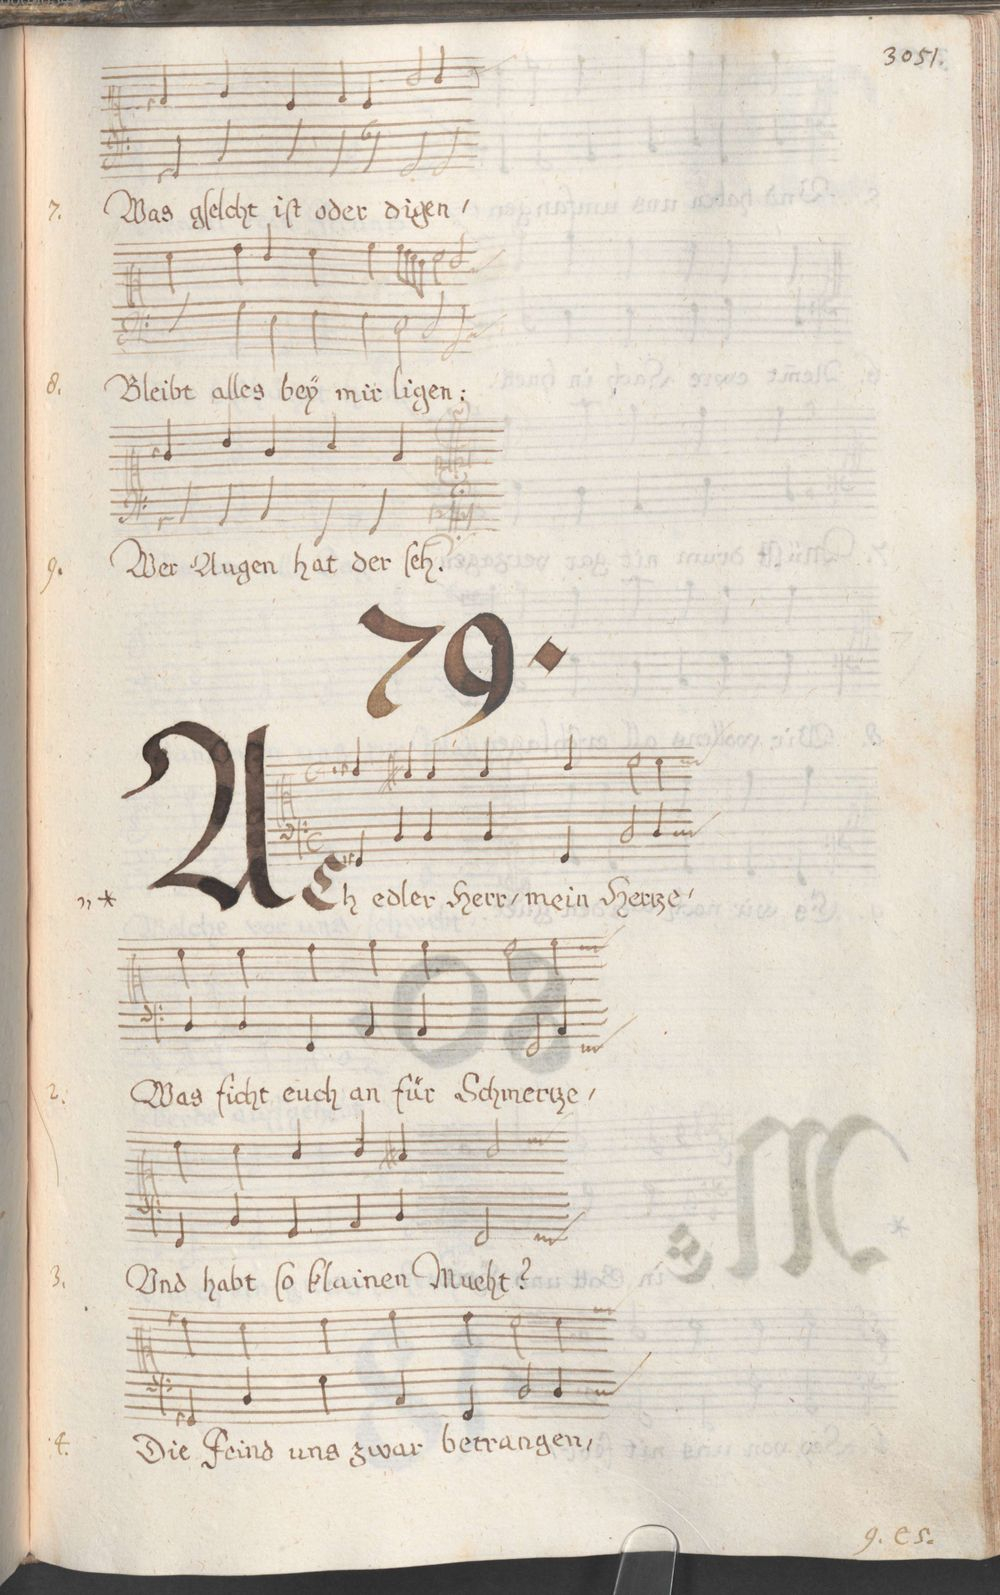 3051.
7. Was gselcht ist oder digen /
8. Bleibt alles beÿ mir ligen:
9. Wer Augen hat der seh.
79.
1. * ACh edler Herr / mein Hertze /
2. Was ficht euch an für Schmertze /
3. Vnd habt so klainen Mueht?
4. Die Feind uns zwar betrangen /
9. e s.